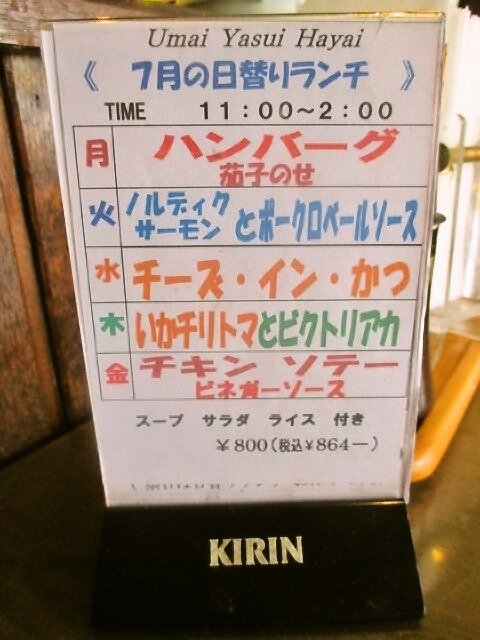 Umai Yasui Hayai
《 7月の日替りランチ 》
TIME 11：00～2：00
月 ハンバーグ
茄子のせ
火 ノルディック
サーモン とポークロベールソース
水 チーズ・イン・かつ
木 いかチリトマとビクトリアカ
金 チキン ソテー
ビネガーソース
スープ サラダ ライス 付き
￥800（税込￥864ー）
KIRIN